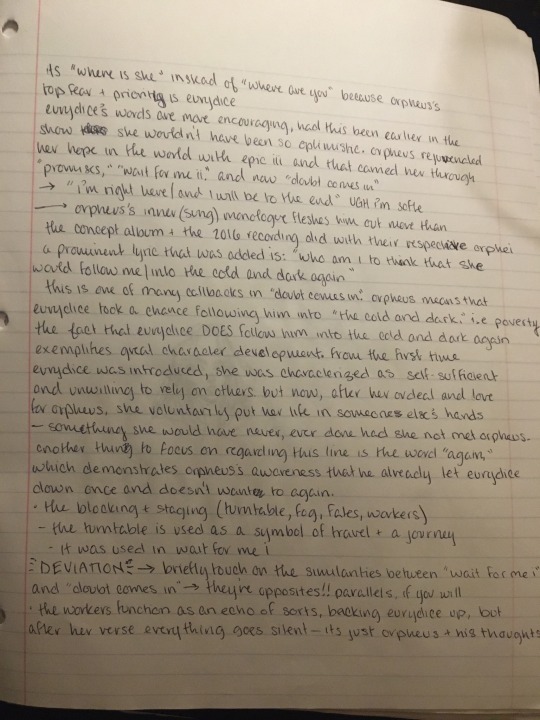 its "where is she" instead of "where are you" because orpheus's
top fear + priority is eurydice
eurydice's words are more encouraging, had this been earlier in the
show she wouldn't have been so optimistic. orpheus rejuvenated
her hope in the world with epic iii and that carried her through
"promises," "wait for me ii," and now "doubt comes in"
→ "i'm right here/and i will be to the end" UGH i'm softe
→ orpheus's inner (sung) monologue fleshes him out more than
the concept album + the 2016 recording did with their respective orphei
a prominent lyric that was added is: "who am i to think that she
would follow me/into the cold and dark again"
this is one of many callbacks in "doubt comes in." orpheus means that
eurydice took a chance following him into "the cold and dark," i.e poverty
the fact that eurydice DOES follow him into the cold and dark again
exemplifies great character development. from the first time
eurydice was introduced, she was characterized as self-sufficient
and unwilling to rely on others. but now, after her ordeal and love
for orpheus, she voluntarily put her life in someone else's hands
- something she would have never, ever done had she not met orpheus.
another thing to focus on regarding this line is the word "again,"
which demonstrates orpheus's awareness that he already let eurydice
down once and doesn't want to again.
• the blocking + staging (turntable, fog, fates, workers)
- the turntable is used as a symbol of travel + a journey
- it was used in wait for me i
DEVIATION → briefly touch on the similarities between "wait for me i"
and "doubt comes in" → they're opposites!! parallels, if you will
• the workers function as an echo of sorts, backing eurydice up, but
after her verse everything goes silent - its just orpheus + his thoughts